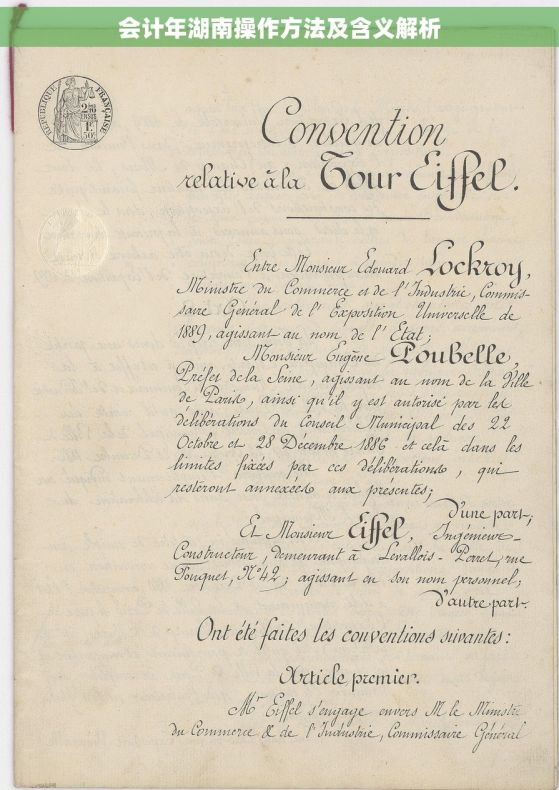 会计年湖南操作方法及含义解析
RÉPUBLIQUE FRANÇAISE
Convention
relative à la Tour Eiffel.
Entre Monsieur Edouard Lockroy,
Ministre du Commerce et de l'Industrie, Commis-
saire Général de l'Exposition Universelle de
1889, agissant au nom de l'Etat;
Monsieur Eugène Poubelle,
Préfet de la Seine, agissant au nom de la Ville
de Paris, ainsi qu'il y est autorisé par les
délibérations du Conseil Municipal des 22
Octobre et 28 Décembre 1886 et celà dans les
limites fixées par ces délibérations, qui
resteront annexées aux présentes;
d'une part;
Et Monsieur Eiffel, Ingénieur-
Constructeur, demeurant à Levallois-Perret, rue
Fouquet, N° 42; agissant en son nom personnel;
d'autre part.
Ont été faites les conventions suivantes:
Article premier.
Mr Eiffel s'engage envers M le Ministre
du Commerce & de l'Industrie, Commissaire Général